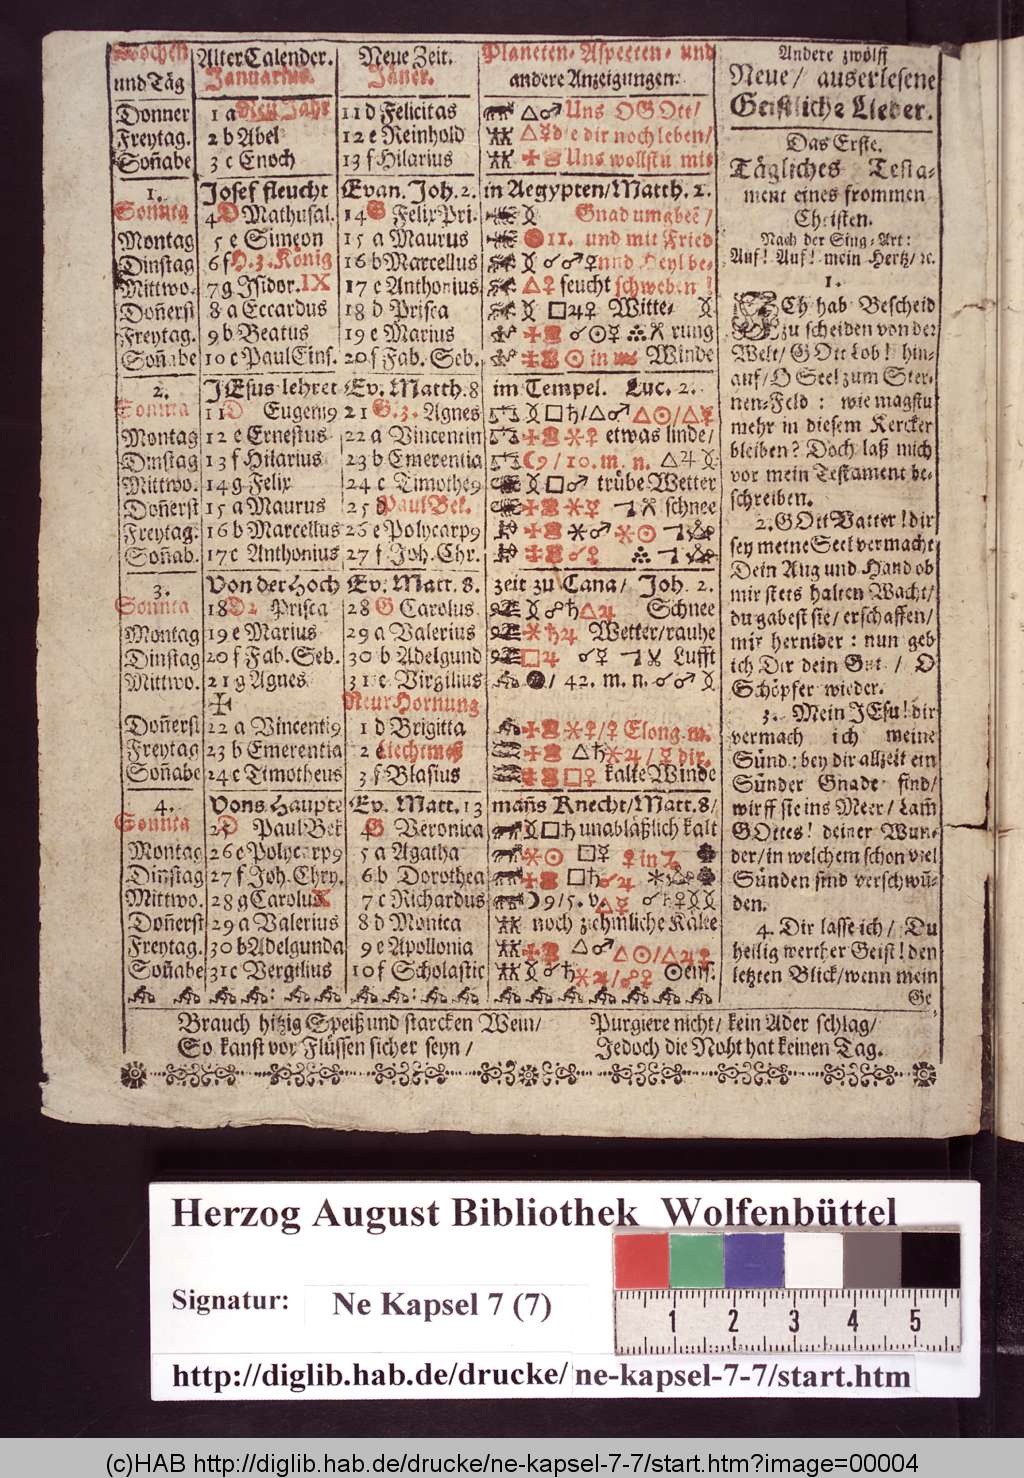 Wochen Alter Calender. Neue Zeit. Planeten- Aspecten- und
und Täg Januarius. Jäner. andere Anzeigungen.
Donner 1 a Neu Jahr 11 d Felicitas △♂ Uns O GOtt/
Freytag. 2 b Abel 12 e Reinhold die dir noch leben/
Soñabe 3 c Enoch 13 f Hilarius Uns wollstu mit
1. Josef fleucht Evan. Joh. 2. in Aegypten/Matth. 2.
Sonnta 4 D Mathusal. 14 G Felix Pri. Gnad umgbeẽ/
Montag 5 e Simeon 15 a Maurus 11. und mit Fried
Dinstag 6 f H. 3. König 16 b Marcellus ☌♂♀ und Heyl be-
Mittwo. 7 g Isidor. IX 17 c Anthonius △♀ feucht schweben!
Doñerst 8 a Eccardus 18 d Prisca □♃♀ Witte-
Freytag. 9 b Beatus 19 e Marius ☌☉☿ rung
Soñabe 10 c Paul Eins. 20 f Fab. Seb. ☉ in Winde
2. JEsus lehret Ev. Matth. 8 im Tempel. Luc. 2.
Sonnta 11 D Eugeni9 21 G. 3. Agnes □♄/△♂ △☉/△☿
Montag 12 e Ernestus 22 a Vincentin ⚹♀ etwas linde/
Dinstag 13 f Hilarius 23 b Emerentia ☾9/10. m. n. △♃
Mittwo. 14 g Felix 24 c Timothe9 □♂ trübe Wetter
Doñerst 15 a Maurus 25 d Paul Bek. ⚹☿ schnee
Freytag. 16 b Marcellus 26 e Polycarp9 ⚹♂ ⚹☉
Soñab. 17 c Anthonius 27 f Joh. Chr. ☌♀
3. Von der Hoch Ev. Matt. 8. zeit zu Cana/ Joh. 2.
Sonnta 18 D 2 Prisca 28 G Carolus ☍♄△♃ Schnee
Montag 19 e Marius 29 a Valerius ⚹♄♃ Wetter/rauhe
Dinstag 20 f Fab. Seb. 30 b Adelgund □♃ ☌☿ Lufft
Mittwo. 21 g Agnes 31 c Virgilius / 42. m. n. ☌♂
✠ Neur Hornung
Doñerst 22 a Vincenti9 1 d Brigitta ⚹♀/☿ Elong. m.
Freytag 23 b Emerentia 2 e Liechtmeß △♄⚹♃/☿ dir.
Soñabe 24 c Timotheus 3 f Blasius □♀ kalte Winde
4. Vons Haupte Ev. Matt. 13 mañs Knecht/Matt. 8/
Sonnta 25 D Paul Bek 4 G Veronica □♄ unabläßlich kalt
Montag 26 e Polycarp9 5 a Agatha ⚹☉ □☿ ♀ in
Dinstag 27 f Joh. Chry. 6 b Dorothea □♄☌♃
Mittwo. 28 g Carolus 7 c Richardus ☽9/5. v. △☿
Doñerst 29 a Valerius 8 d Monica noch ziehmliche Kälte
Freytag. 30 b Adelgunda 9 e Apollonia △♂ △☉/△♃♀
Soñabe 31 c Vergilius 10 f Scholastic ☌♄ ⚹♃/☍♀
Brauch hitzig Speiß und starcken Wein/ Purgiere nicht/ kein Ader schlag/
So kanst vor Flüssen sicher seyn/ Jedoch die Noht hat keinen Tag.
Andere zwölff
Neue/ auserlesene
Geistliche Lieder.
Das Erste.
Tägliches Testa-
ment eines frommen
Christen.
Nach der Sing-Art:
Auf! Auf! mein Hertz/ ꝛc.
1.
ICh hab Bescheid
zu scheiden von der
Welt/ GOtt Lob! hin-
auf/ O Seel zum Ster-
nen-Feld: wie magstu
mehr in diesem Kercker
bleiben? Doch laß mich
vor mein Testament be-
schreiben.
2. GOtt Vatter! dir
sey meine Seel vermacht
Dein Aug und Hand ob
mir stets halten Wacht/
du gabest sie/ erschaffen/
mir hernider: nun geb
ich Dir dein Gut/ O
Schöpfer wieder.
3. Mein JEsu! dir
vermach ich meine
Sünd: bey dir allzeit ein
Sünder Gnade find/
wirff sie ins Meer/ Lam̃
GOttes! deiner Wun-
der/ in welchem schon viel
Sünden sind verschwũ-
den.
4. Dir lasse ich/ Du
heilig werther Geist! den
letzten Blick/ wenn mein
Ge
Herzog August Bibliothek Wolfenbüttel
Signatur: Ne Kapsel 7 (7)
1 2 3 4 5
http://diglib.hab.de/drucke/ne-kapsel-7-7/start.htm
(c)HAB http://diglib.hab.de/drucke/ne-kapsel-7-7/start.htm?image=00004